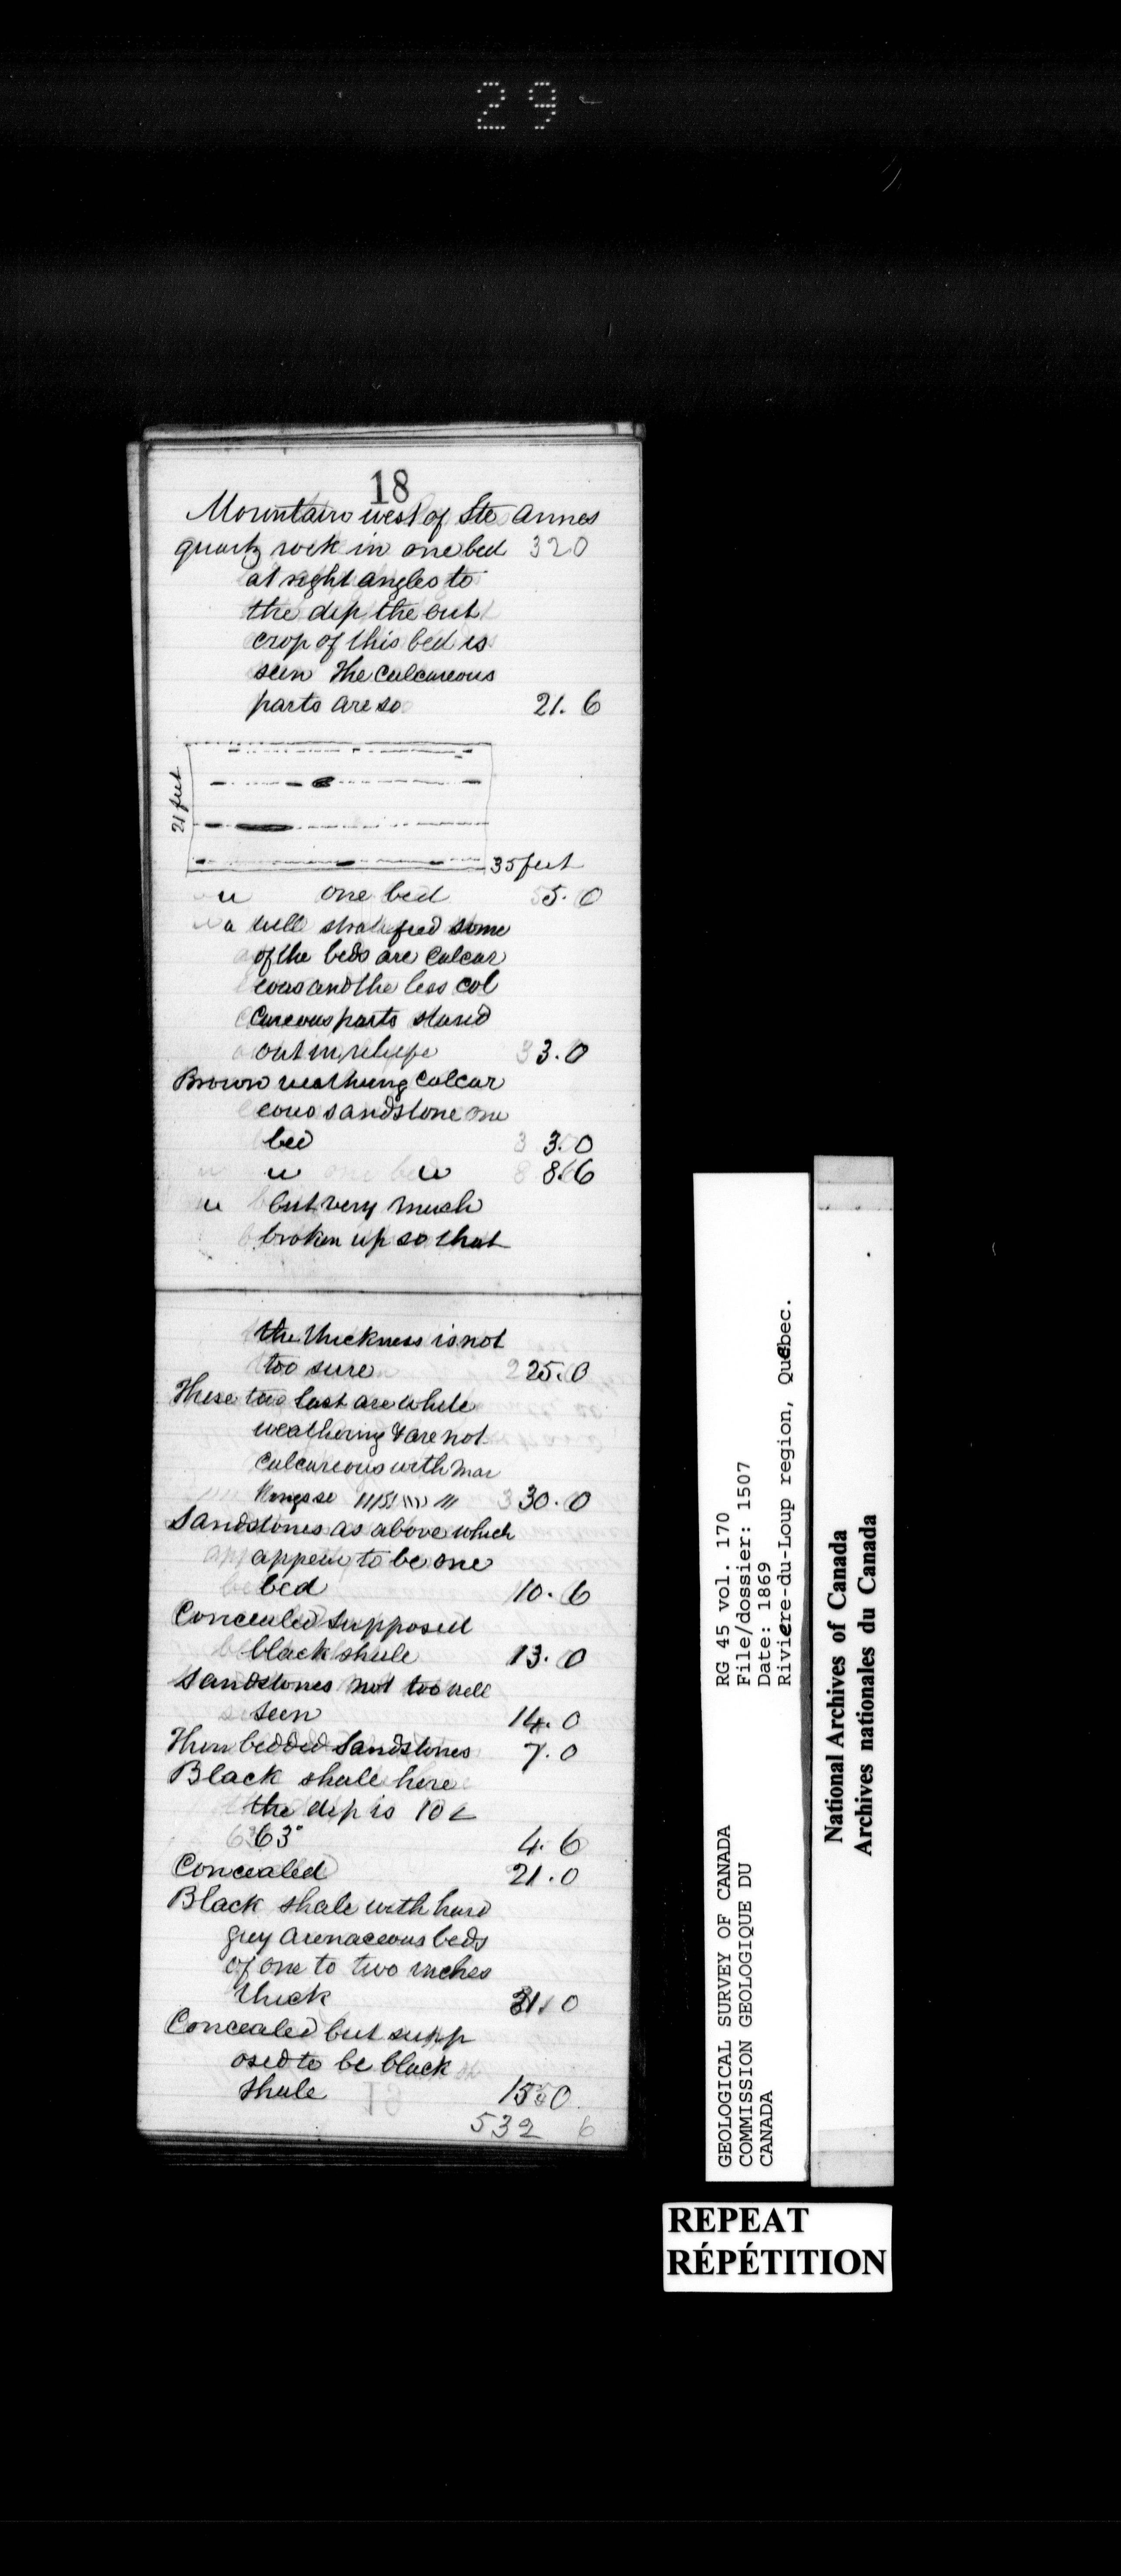 29
18
Mountain west of Ste Annes
quartz rock in one bed 320
at right angles to
the dip the out
crop of this bed is
seen The calcareous
parts are so 21. 6
21 feet
35 feet
" one bed 5. 0
" " well stratified some
of the beds are calcar
eous and the less cal
careous parts stand
out in 3. 0
Brown weathering calcar
eous sandstone one
bed 3. 0
" " 8. 6
" but very much
broken up so that
the thickness is not
too sure 25. 0
These two last are white
weathering & are not
calcareous with mar
kings so 30. 0
Sandstones as above which
appear to be one
bed 10. 6
Concealed supposed
black shale 13. 0
Sandstones not too well
seen 14. 0
Thin bedded Sandstones 7. 0
Black shale here
the dip is 10 <
63° 4. 6
Concealed 21. 0
Black shale with hard
grey arenaceous beds
of one to two inches
thick 31. 0
Concealed but supp
osed to be black
shale 15. 0
532 6
GEOLOGICAL SURVEY OF CANADA
COMMISSION GEOLOGIQUE DU
CANADA
RG 45 vol. 170
File/dossier: 1507
Date: 1869
Riviere-du-Loup region, Québec.
National Archives of Canada
Archives nationales du Canada
REPEAT
RÉPÉTITION